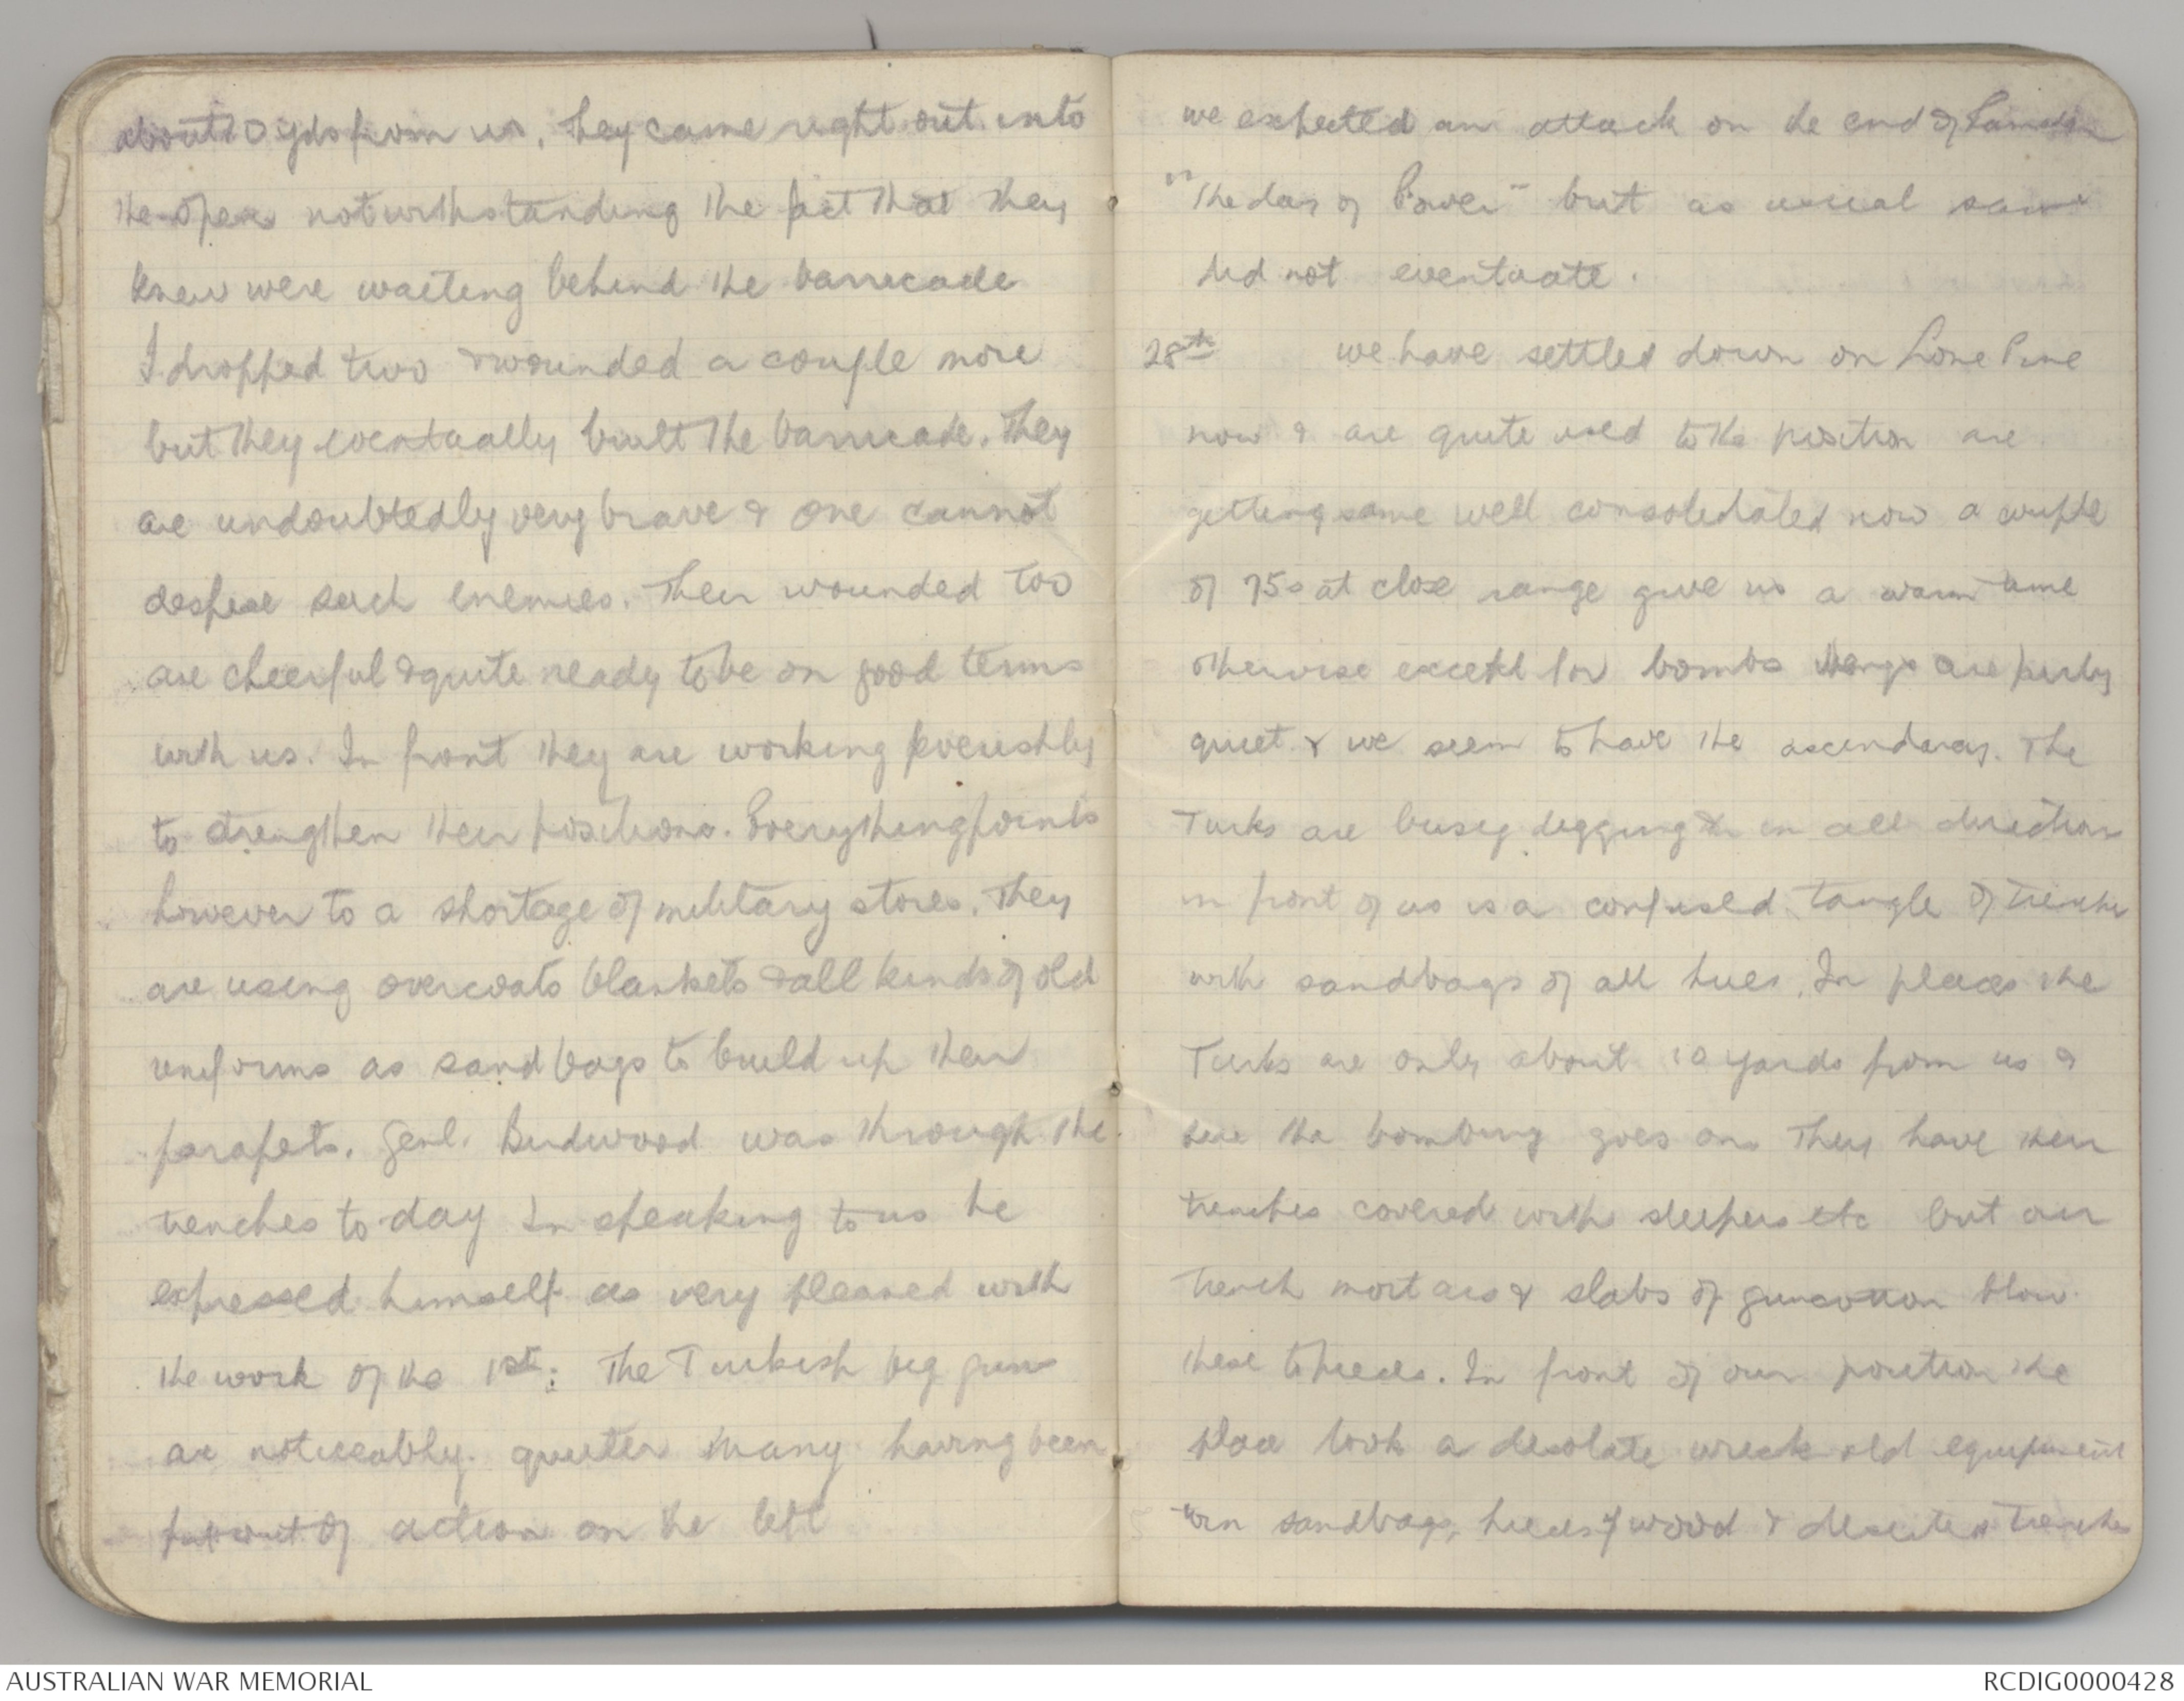 about 10 yds from us. They came right out into
the open notwithstanding the fact that they
knew were waiting behind the barricade
I dropped two & wounded a couple more
but they eventually built the barricade. They
are undoubtedly very brave & one cannot
despise such enemies. Their wounded too
are cheerful & quite ready to be on good terms
with us. In front they are working feverishly
to strengthen their positions. Everything points
however to a shortage of military stores. They
are using overcoats blankets & all kinds of old
uniforms as sand bags to build up their
parapets. Genl. Birdwood was through the
trenches to-day In speaking to us he
expressed himself as very pleased with
the work of the 1st: The Turkish big guns
are noticeably quieter many having been
put out of action on the left
we expected an attack on the end of
"The day of Power" but as usual same
did not eventuate.
28th we have settled down on Lone Pine
now & are quite used to the position are
getting same well consolidated now a couple
of 75s at close range give us a warm time
otherwise except for bombs things are fairly
quiet & we seem to have the ascendancy. The
Turks are busy digging in all direction
in front of us is a confused tangle of trenches
with sandbags of all hues. In places the
Turks are only about 10 yards from us &
here the bombing goes on. They have their
trenches covered with sleepers etc but our
trench mortars & slabs of guncotton blow
these to pieces. In front of our position the
place look a desolate wreck old equipment
torn sandbags, pieces of wood & deserted trenches
AUSTRALIAN WAR MEMORIAL
RCDIG0000428